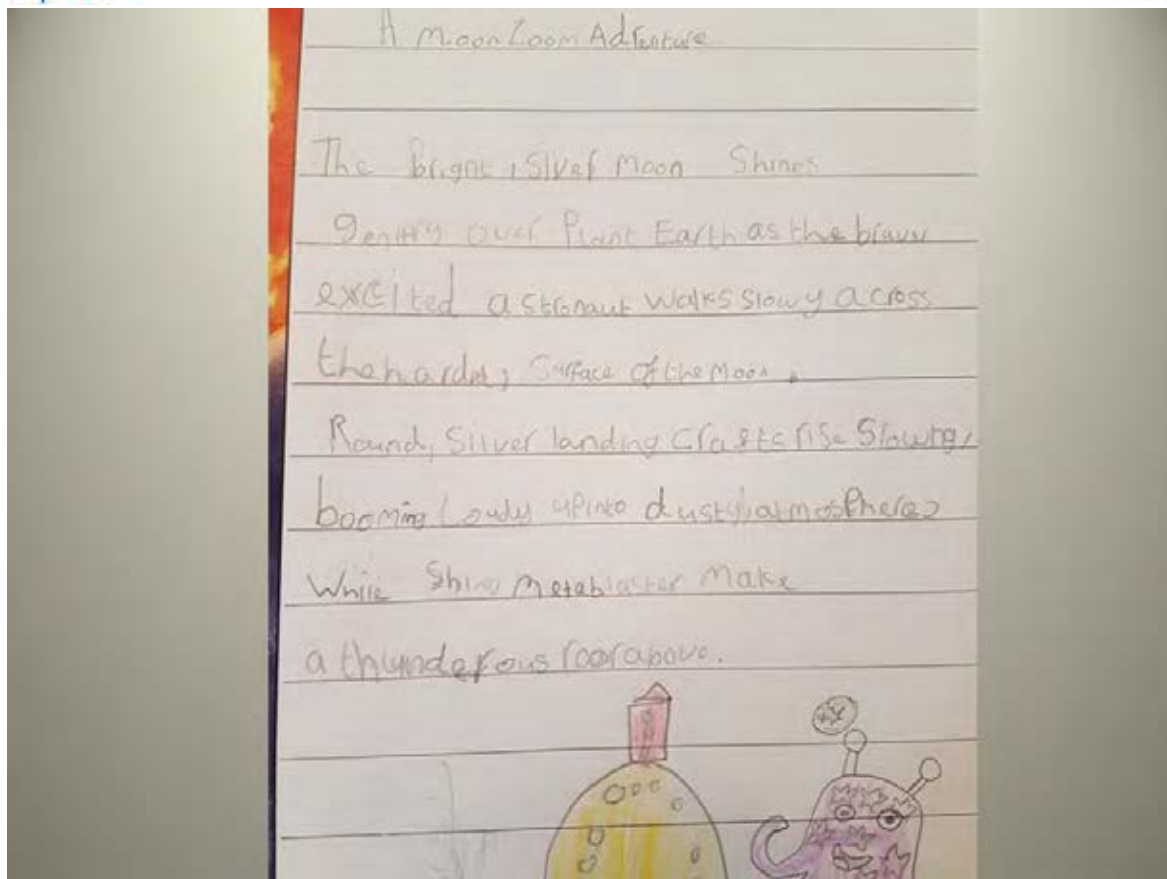 A Moon Zoom Adfenture
The bright, Slver Moon Shines
gently over Plant Earth as the brave
excited astronaut walks slowy across
the hard, Surface of the Moon.
Round, Sliver landing Crafts rise Slowly,
booming Loudy up into dusty, atmosphere
While Shiny Metablaster Make
a thunderous roor above.